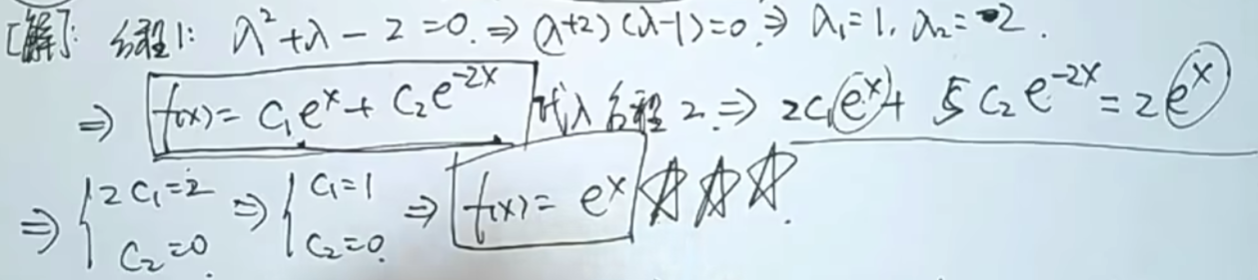 [解]: 方程1: λ²+λ-2=0. ⇒ (λ+2)(λ-1)=0. ⇒ λ₁=1, λ₂=-2.
⇒ f(x)=C₁eˣ+C₂e⁻²ˣ 代入方程2. ⇒ 2C₁eˣ+5C₂e⁻²ˣ=2eˣ
⇒ { 2C₁=2 C₂=0. ⇒ { C₁=1 C₂=0. ⇒ f(x)=eˣ ☆☆☆.